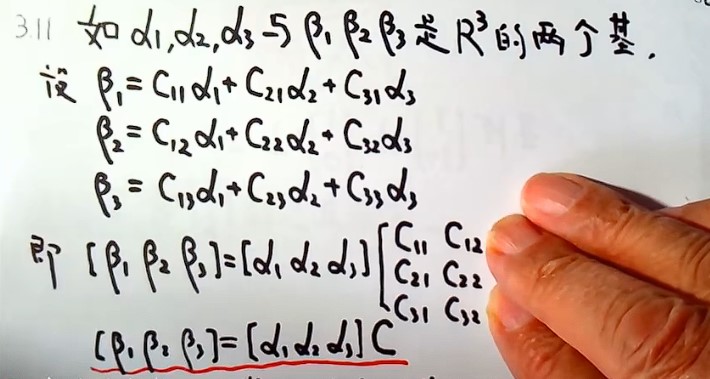 3.11 如 α₁,α₂,α₃ 与 β₁ β₂ β₃ 是 R³ 的两个基.
设 β₁ = C₁₁α₁ + C₂₁α₂ + C₃₁α₃
β₂ = C₁₂α₁ + C₂₂α₂ + C₃₂α₃
β₃ = C₁₃α₁ + C₂₃α₂ + C₃₃α₃
即 [β₁ β₂ β₃] = [α₁ α₂ α₃] [C₁₁ C₁₂
C₂₁ C₂₂
C₃₁ C₃₂
[β₁ β₂ β₃] = [α₁ α₂ α₃] C